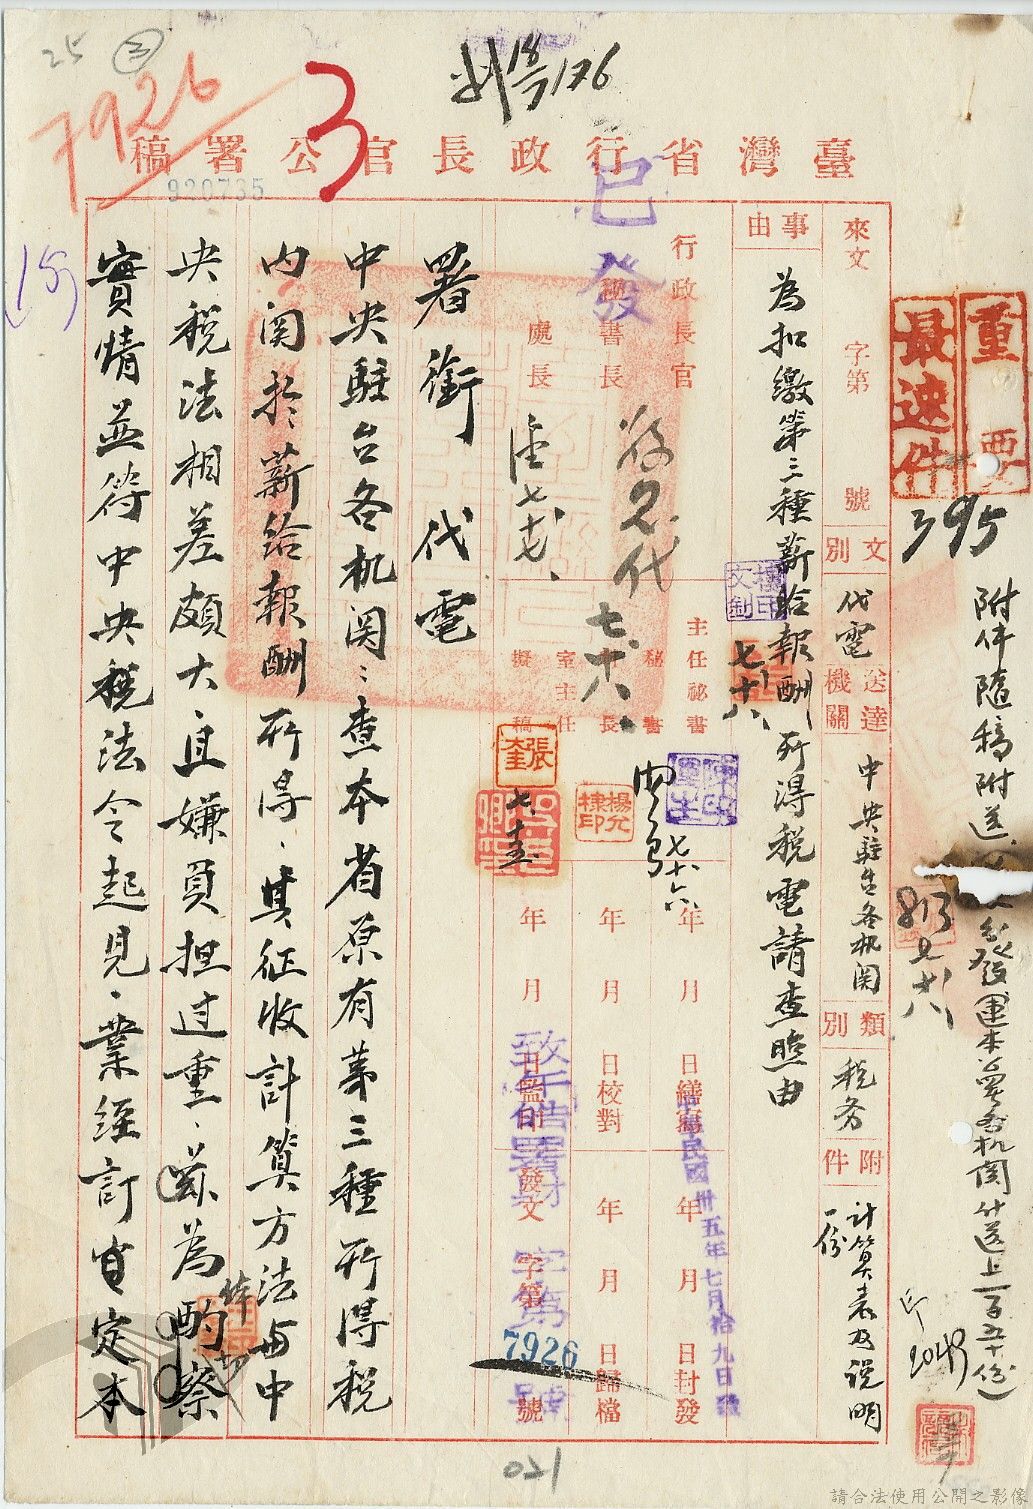 25
③
7926
3
920735
18/7 176
臺灣省行政長官公署稿
已發
重要
最速件
395
附件隨稿附送
發運本署各机関
送上一百五十份
813
印
2049
來文 字第 號
文別 代電
送達機關 中央駐台各机関
類別 税务
附件 計算表及說明一份
事由
為扣繳第三種薪給報酬所得税電請查照由
行政長官
秘書長
處長
主任秘書
秘書
室主任
擬稿
七十八
七十六
張奎
楊允棣印
年 月 日繕寫
年 月 日校對
年 月 日監印
年 月 日封發
年 月 日歸檔
發文 字第 號
中華民國卅五年七月拾九日發
致午皓署財
字第7926號
署銜代電
中央駐台各机関：查本省原有第三種所得税
内関於薪給報酬所得，其征收計算方法与中
央税法相差頗大，且嫌負担过重，茲為酌察
實情並符中央税法令起見，業經訂定本
(15)
021
請合法使用公開之影像